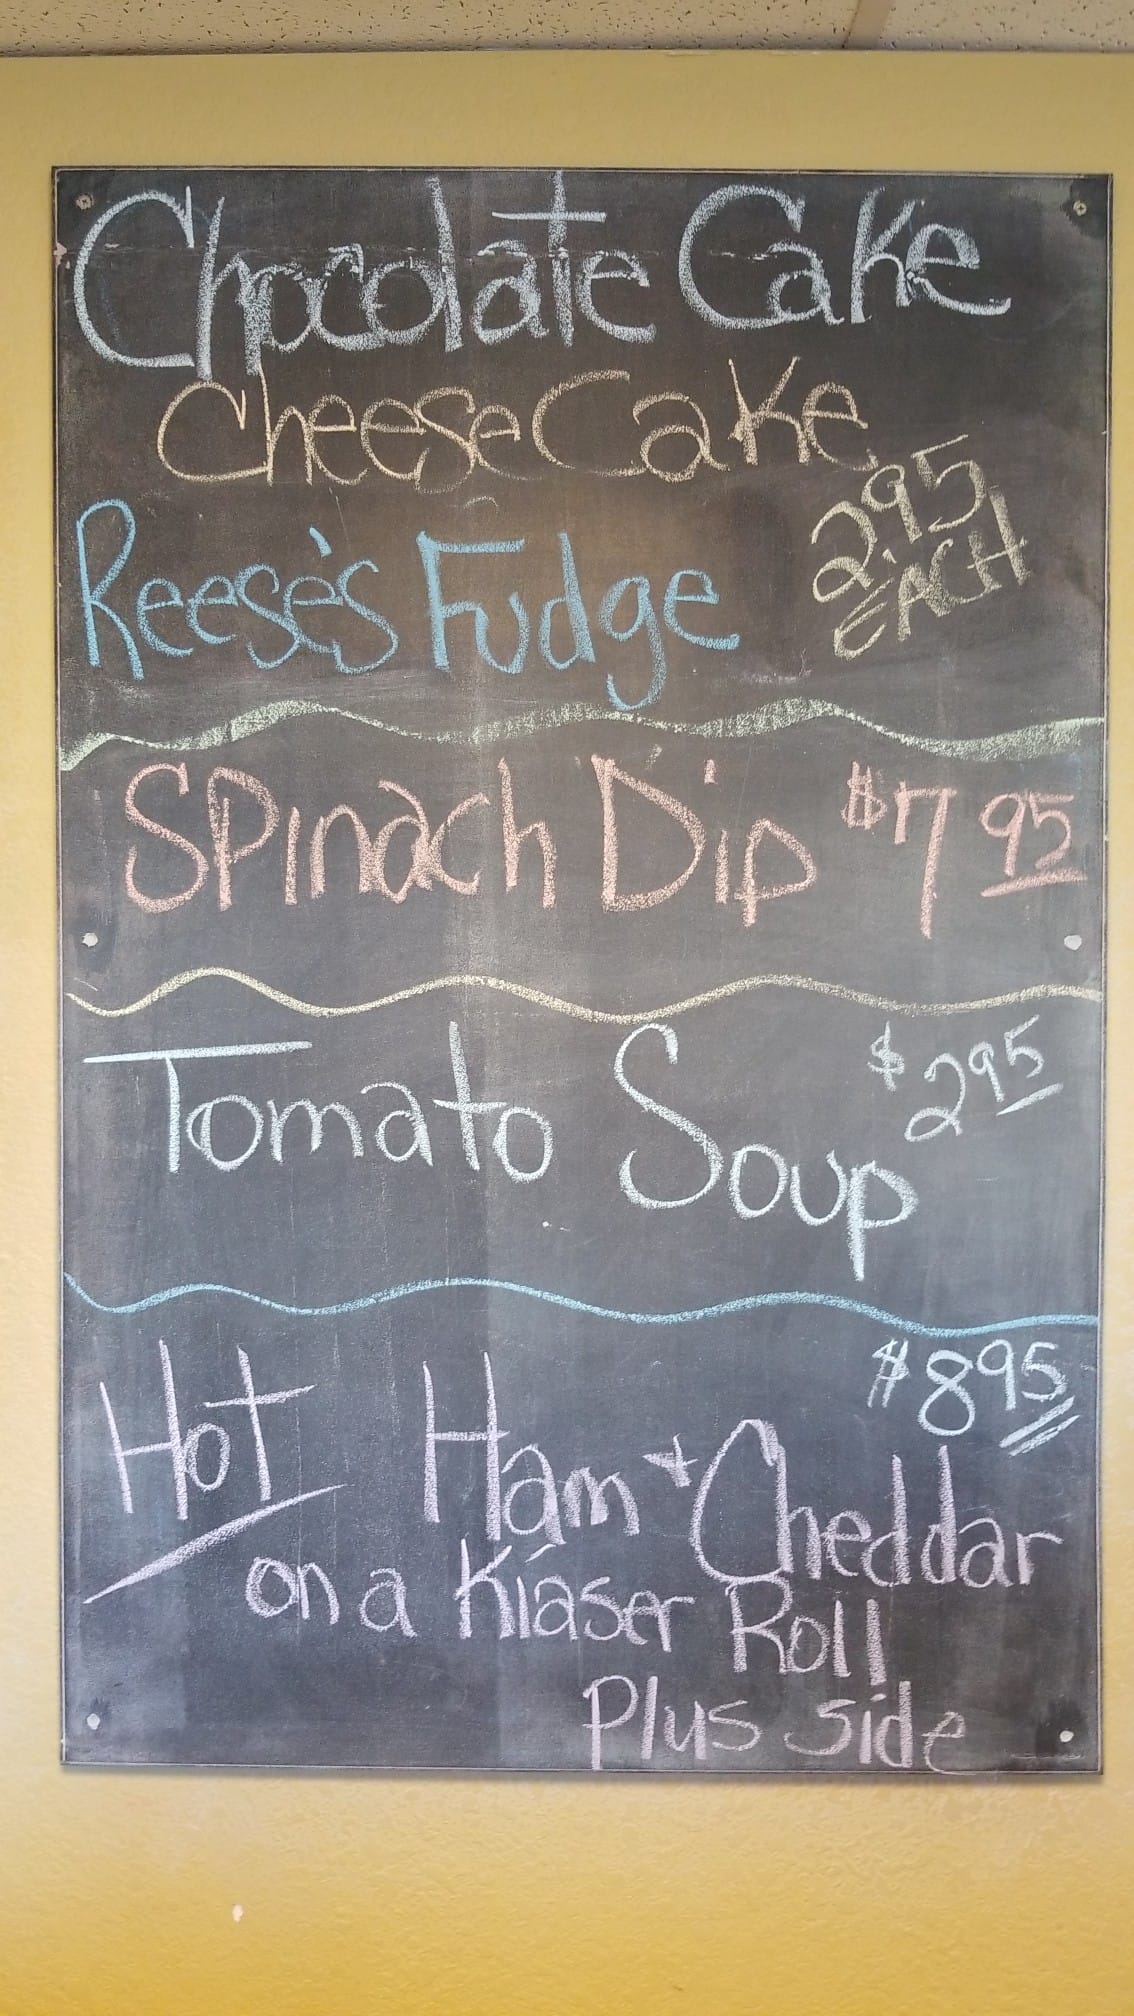 Chocolate Cake
CheeseCake
Reese's Fudge
2.95
EACH
Spinach Dip $7 95
Tomato Soup
$2 95
$8 95
Hot Ham + Cheddar
on a Kiaser Roll
Plus side